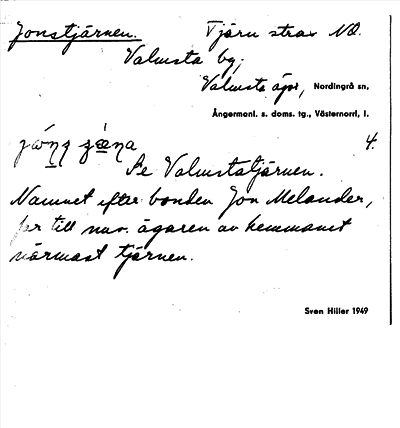 Jonstjärnen. Tjärn strax NO.
Valmsta by;
Valmsta ägor, Nordingrå sn,
Ångermanl. s. doms. tg., Västernorrl. l.
4.
Se Valmstatjärnen.
Namnet efter bonden Jon Melander,
far till nuv. ägaren av hemmanet
närmast tjärnen.
Sven Hiller 1949